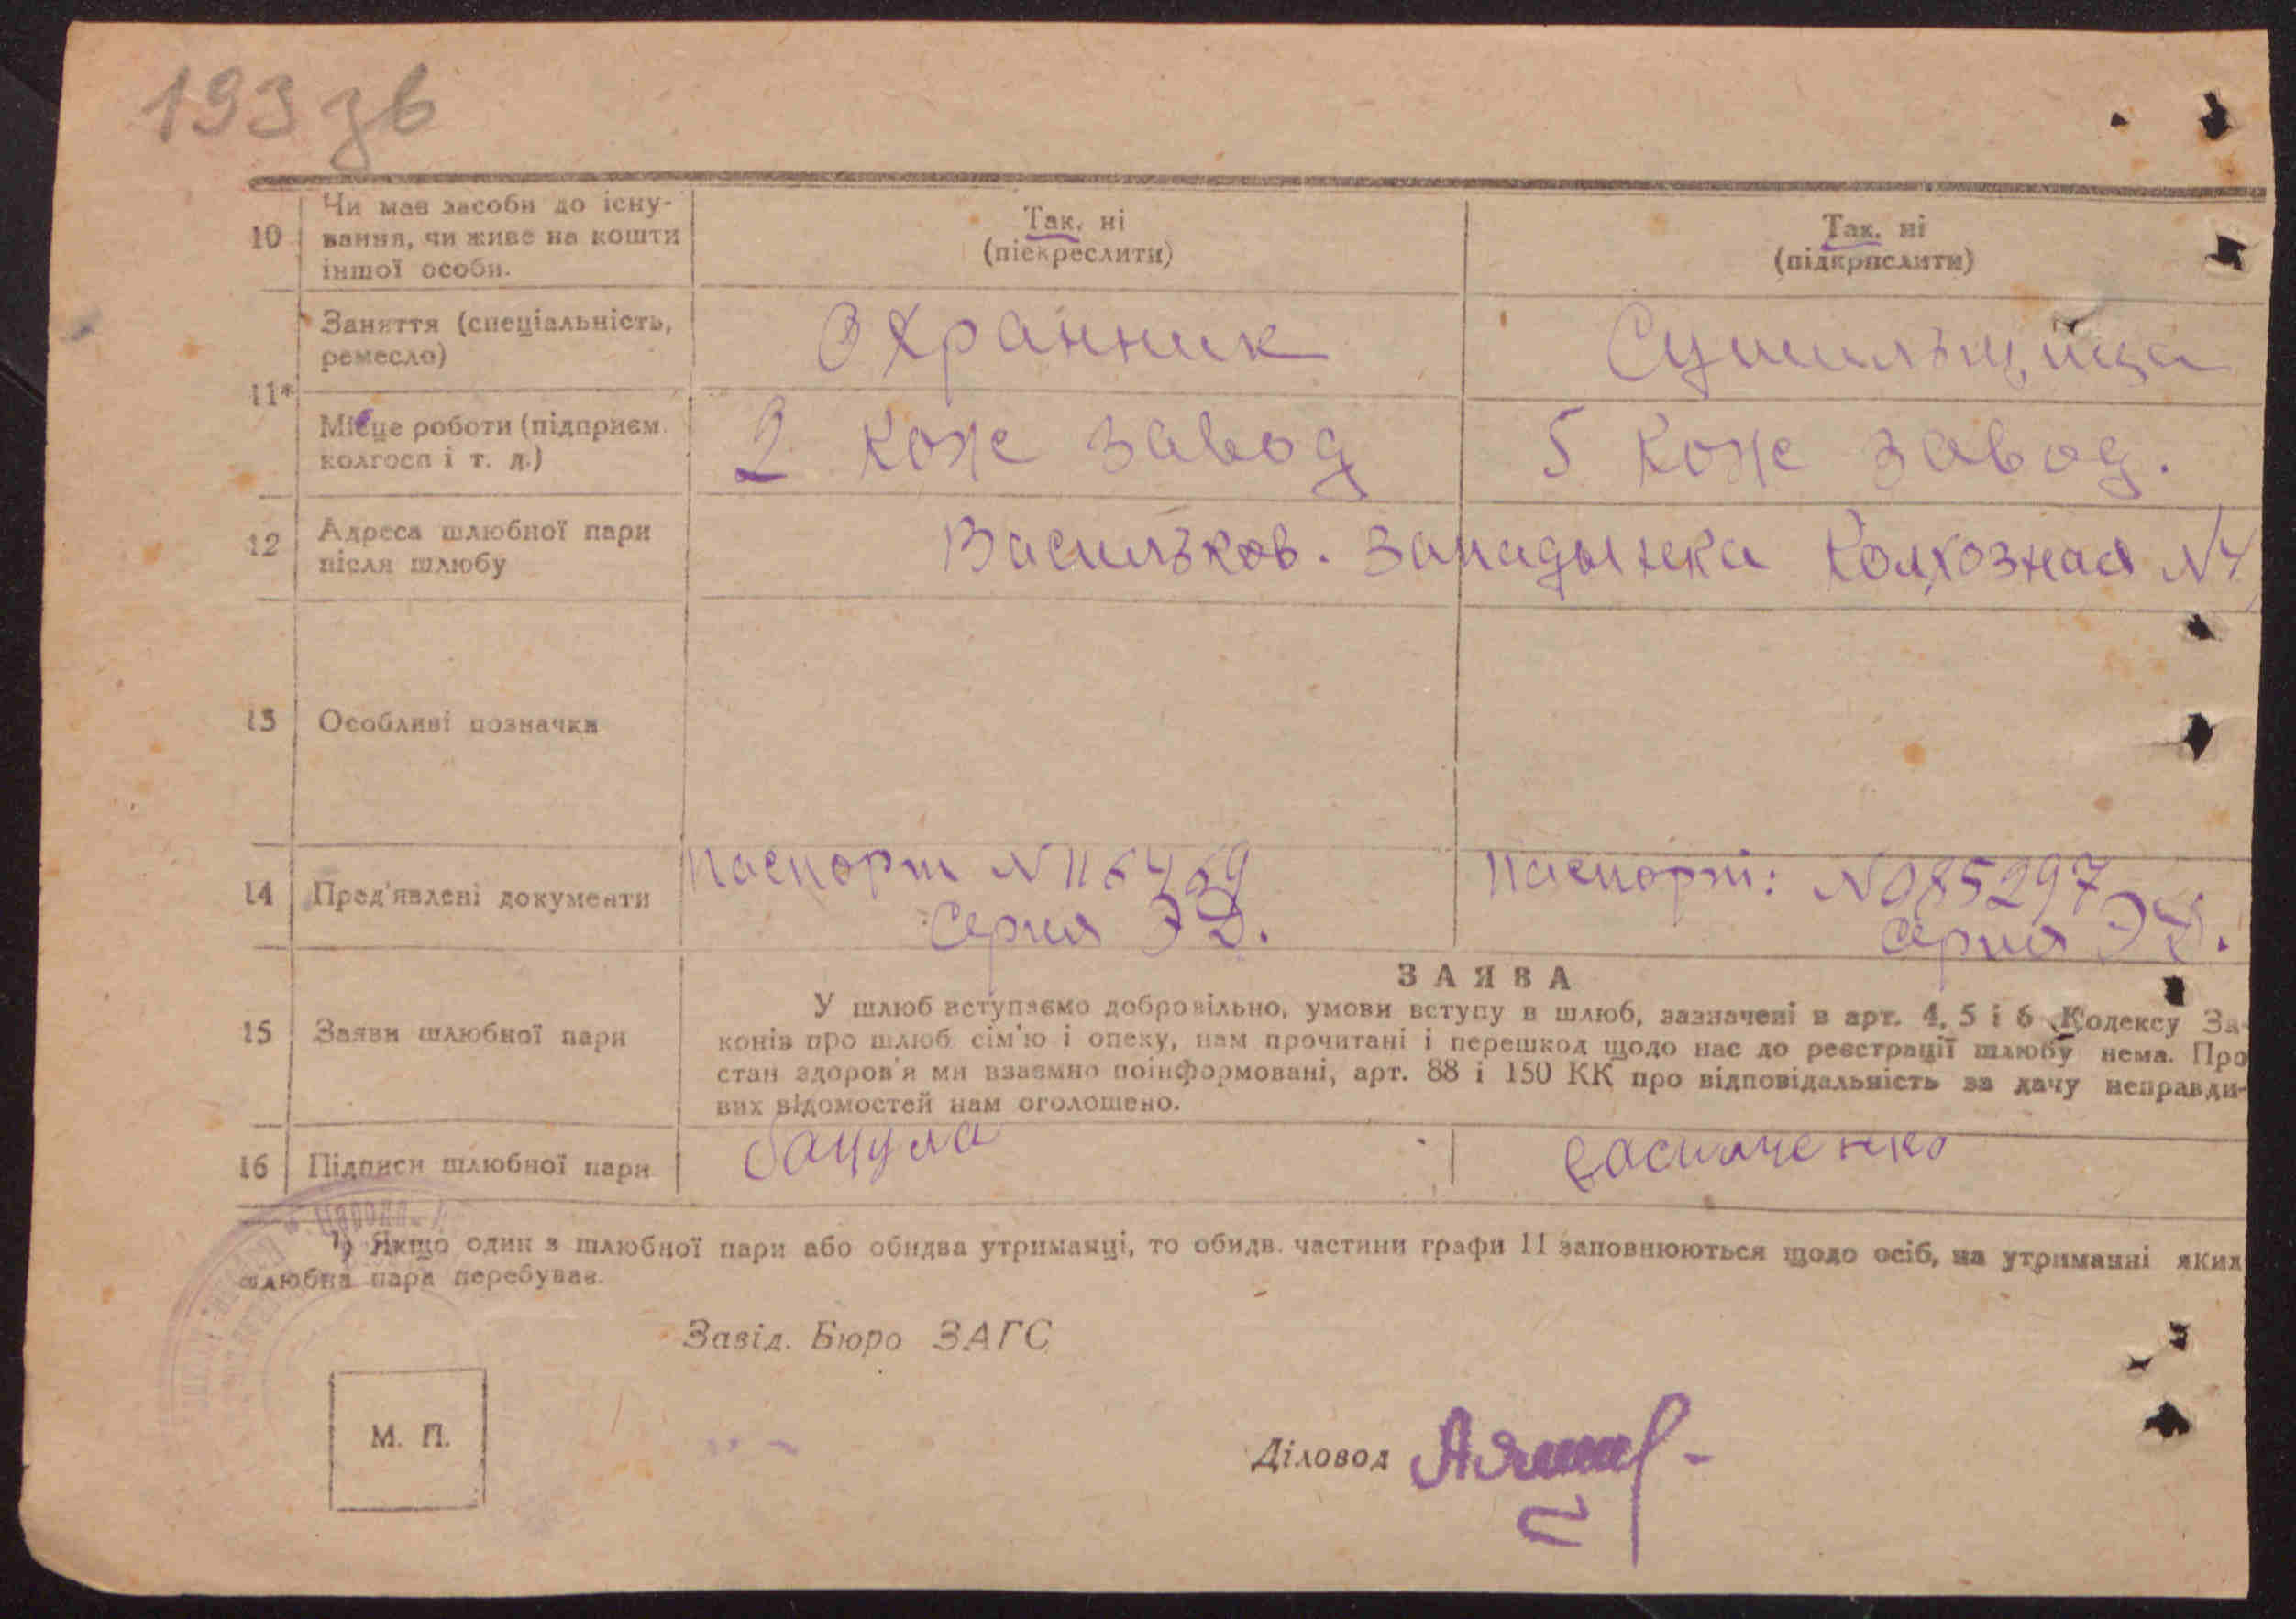 193 зв
10 Чи має засоби до існу-
вання, чи живе на кошти
іншої особи.
Так, ні
(піскреслити)
Так, ні
(підкрислити)
11*
Заняття (спеціальність,
ремесло)
Охранник
Сушильщица
Місце роботи (підприєм.
колгосп і т. д.)
2 Коже завод
5 Коже завод.
12 Адреса шлюбної пари
після шлюбу
Васильков. Западынка Колхозная №4
13 Особливі позначки
14 Пред'явлені документи
Паспорт №
Серия ЭД.
Паспорт: №085297
Серия ЭД.
15 Заяви шлюбної пари
ЗАЯВА
У шлюб вступаємо добровільно, умови вступу в шлюб, зазначені в арт. 4, 5 і 6 Кодексу За-
конів про шлюб сім'ю і опеку, нам прочитані і перешкод щодо нас до реєстрації шлюбу нема. Про
стан здоров'я ми взаємно поінформовані, арт. 88 і 150 КК про відповідальність за дачу неправди-
вих відомостей нам оголошено.
16 Підписи шлюбної пари
Бацула
¹) Якщо один з шлюбної пари або обидва утриманці, то обидв. частини графи 11 заповнюються щодо осіб, на утриманні яких
шлюбна пара перебуває.
Завід. Бюро ЗАГС
М. П.
Діловод